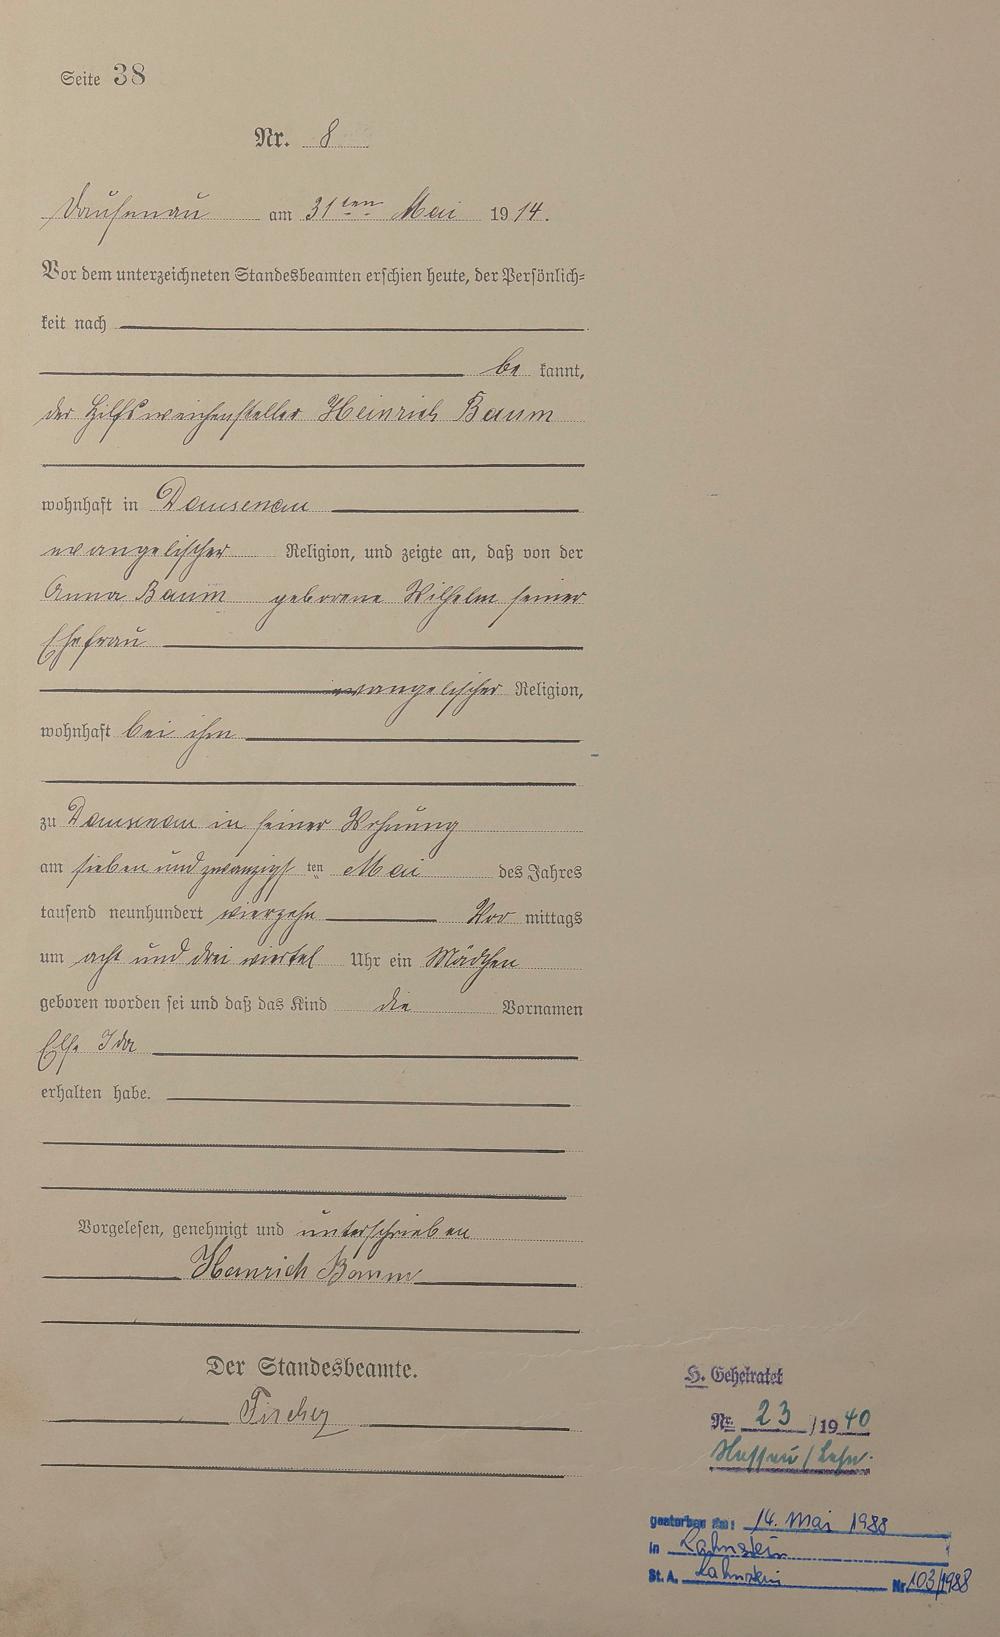 Seite 38
Nr. 8
Dausenau am 31ten Mai 1914.
Vor dem unterzeichneten Standesbeamten erschien heute, der Persönlich=
keit nach
be kannt,
der Hilfsweichensteller Heinrich Baum
wohnhaft in Dausenau
evangelischer Religion, und zeigte an, daß von der
Anna Baum geborene Wilhelm seiner
Ehefrau
evangelischer Religion,
wohnhaft bei ihm
zu Dausenau in seiner Wohnung
am sieben und zwanzigsten Mai des Jahres
tausend neunhundert vierzehn Vor mittags
um acht und drei viertel Uhr ein Mädchen
geboren worden sei und daß das Kind die Vornamen
Else Ida
erhalten habe.
Vorgelesen, genehmigt und unterschrieben
Heinrich Baum
Der Standesbeamte.
Fischer
H. Geheiratet
Nr. 23 /1940
Nassau/Lahn.
gestorben am: 14. Mai 1988
in Lahnstein
St. A. Lahnstein Nr. 103/1988